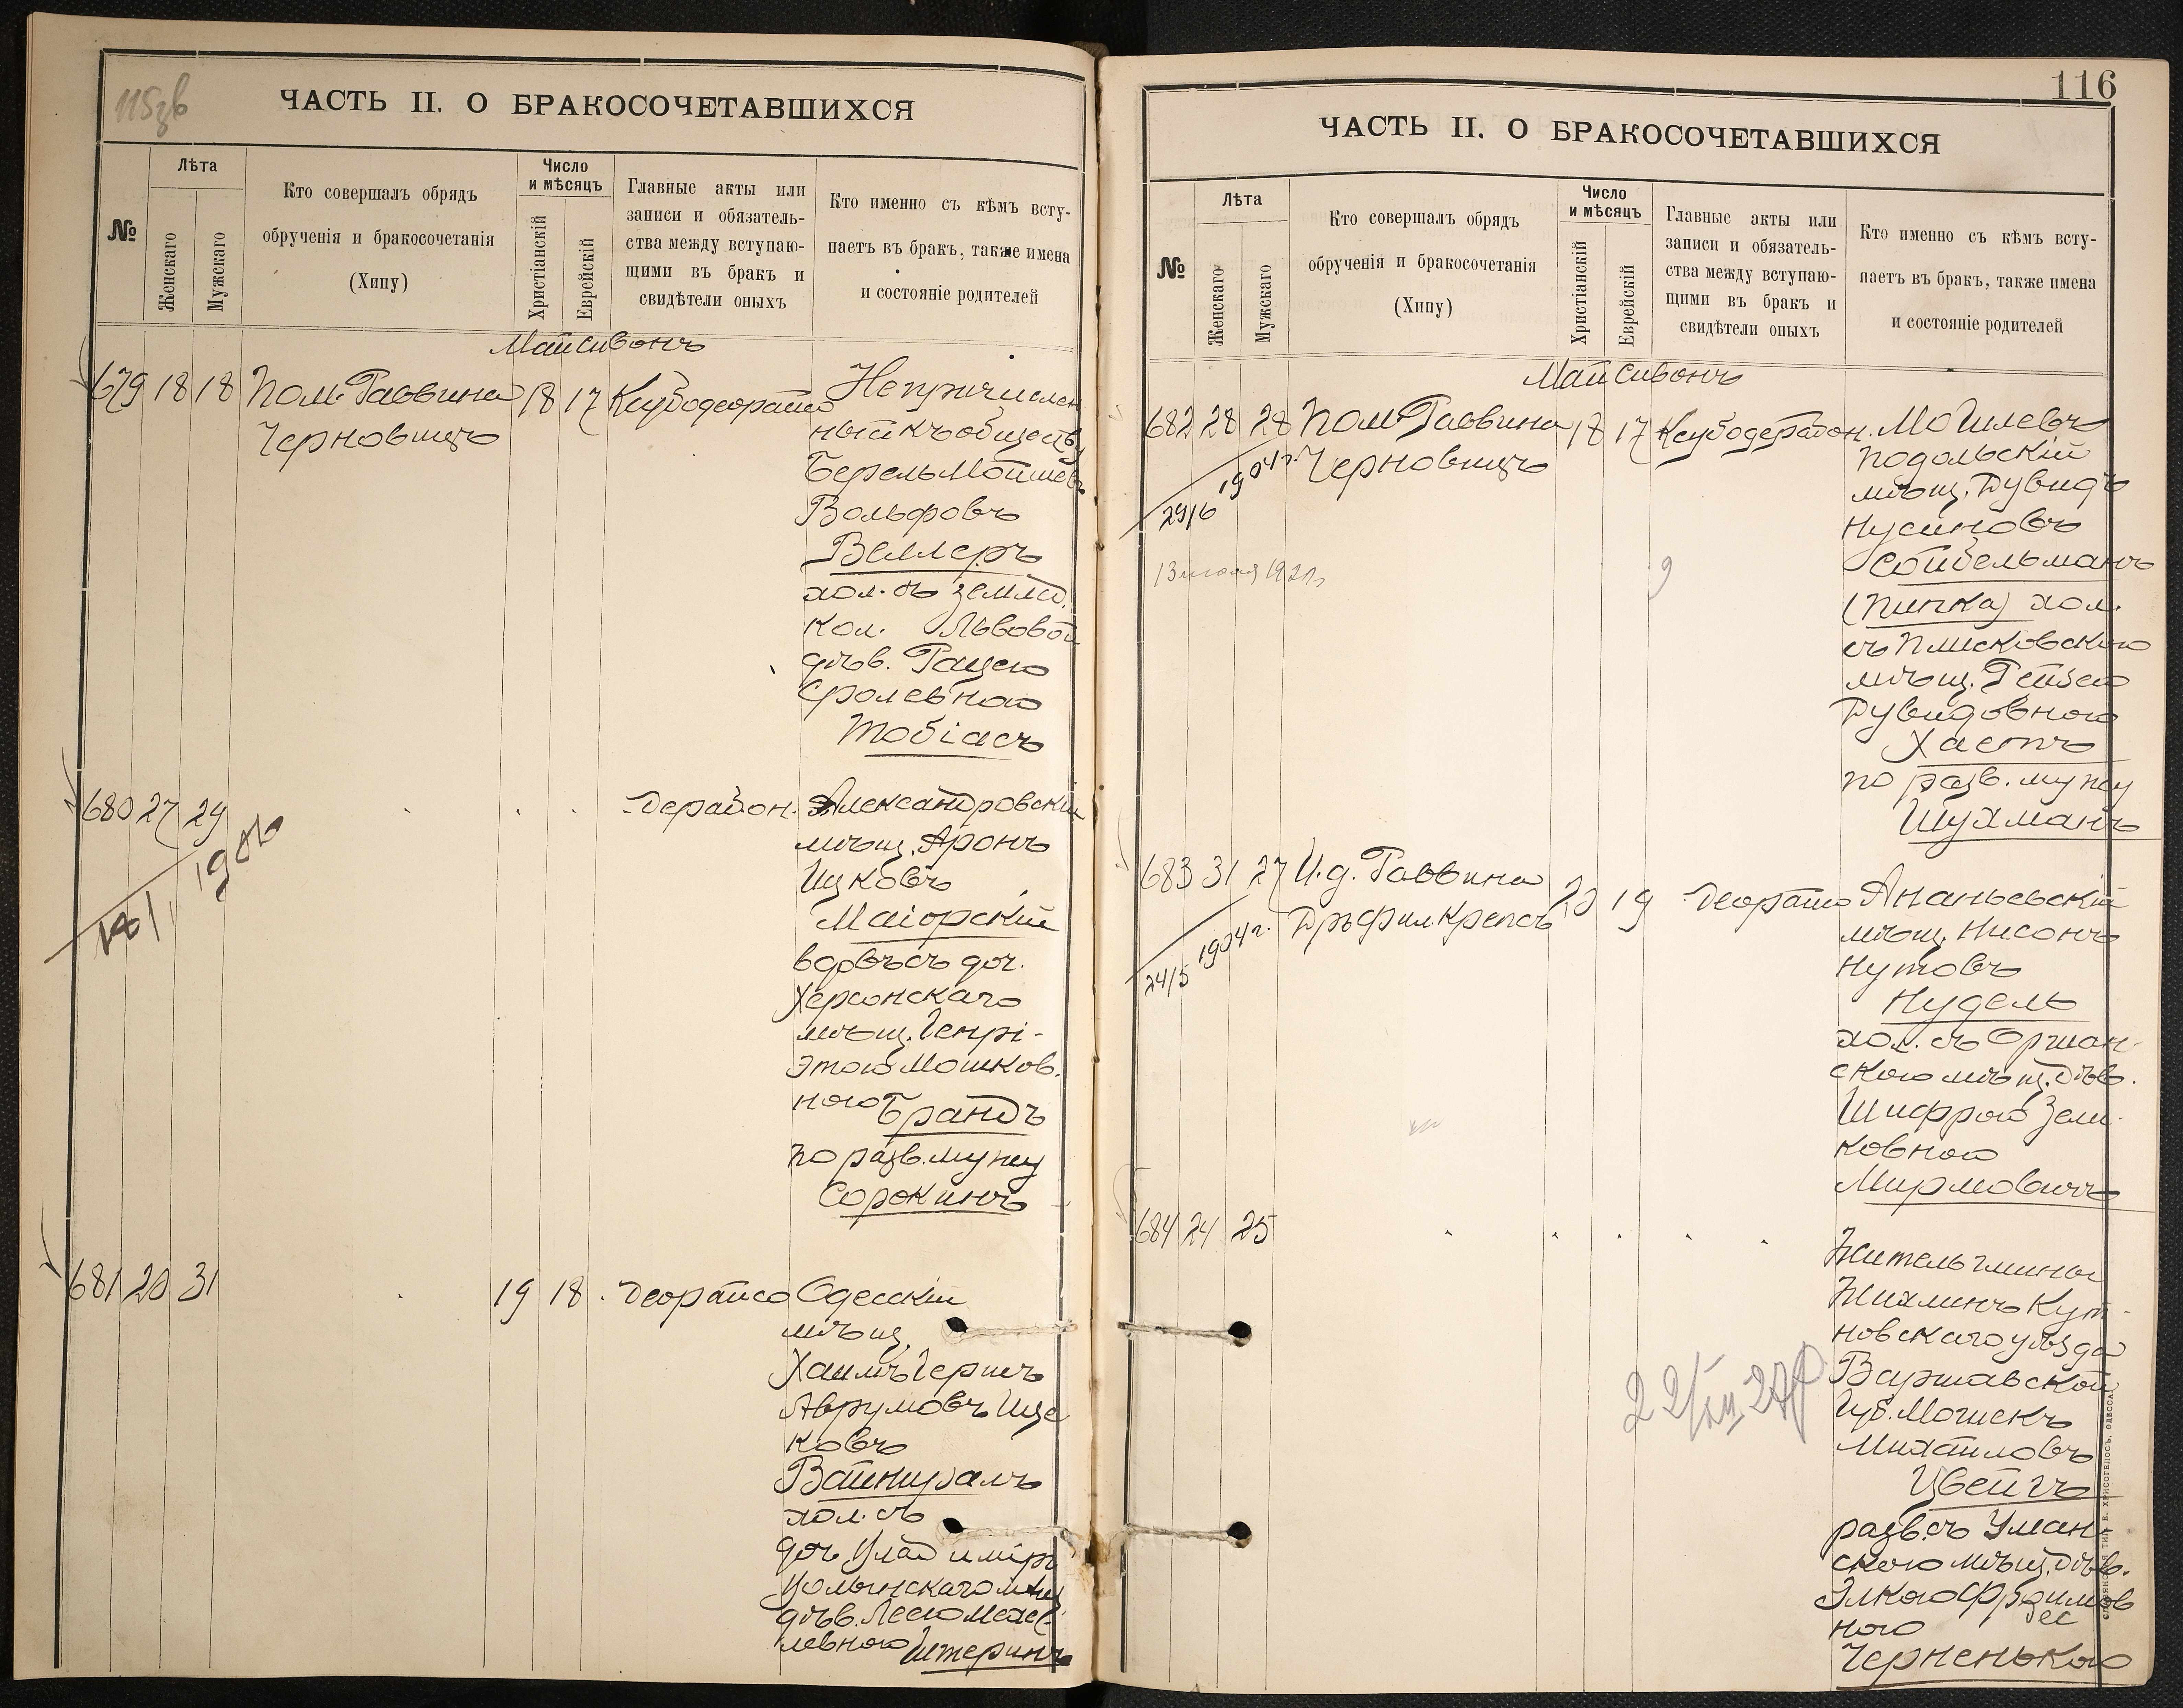 115 зв
ЧАСТЬ II. О БРАКОСОЧЕТАВШИХСЯ
№
Лѣта
Женскаго
Мужскаго
Кто совершалъ обрядъ
обрученія и бракосочетанія
(Хипу)
Число
и мѣсяцъ
Христіанскій
Еврейскій
Главные акты или
записи и обязатель-
ства между вступаю-
щими въ бракъ и
свидѣтели оныхъ
Кто именно съ кѣмъ всту-
паетъ въ бракъ, также имена
и состояніе родителей
Май Сивонъ
679 18 18 Пом. Раввина 18 17 Ксубодеорайсо Непричислен
Черновицъ
ный къ обществу
Берель Мойшев
Вольфовъ
Веллеръ
хол. съ землед.
кол. Львовой
дѣв. Рацею
Сролевною
Тобіасъ
680 27 29 Дерабон. Александровскій
18/1 1906
мѣщ. Аронъ
Ицковъ
Маіорскій
вдовъ съ доч.
Херсонскаго
мѣщ. Генрі-
этою Мошков.
ною Брандъ
по разв. мужу
Сорокинъ
681 20 31 19 18 Деорайсо Одесскій
мѣщ.
Хаимъ Гершъ
Аврумовъ Ице
ковъ
Вайнцралъ
хол. съ
доч. Владимір
Волынскаго мѣщ
дѣв. Леею Мехе
левною Штеринъ
116
ЧАСТЬ II. О БРАКОСОЧЕТАВШИХСЯ
№
Лѣта
Женскаго
Мужскаго
Кто совершалъ обрядъ
обрученія и бракосочетанія
(Хипу)
Число
и мѣсяцъ
Христіанскій
Еврейскій
Главные акты или
записи и обязатель-
ства между вступаю-
щими въ бракъ и
свидѣтели оныхъ
Кто именно съ кѣмъ всту-
паетъ въ бракъ, также имена
и состояніе родителей
Май Сивонъ
682 28 28 Пом. Раввина 18 17 Ксубодерабон. Могилевъ
Черновицъ
29/6 1904 г.
13 июня 192
Подольскій
мѣщ. Дувидъ
Нусиновъ
Сойбельманъ
(Пипка) хол.
съ Плисковскою
мѣщ. Рейзею
Дувидовною
Хастъ
по разв. мужу
Шухманъ
683 31 27 И.д. Раввина 20 19 Деорайсо Ананьевскій
Дръ Фил Крепсъ
24/5 1904 г.
мѣщ. Нисонъ
Нутовъ
Нудель
хол. съ Оршан-
скою мѣщ. дѣв.
Шифрою Зели-
ковною
Мирмовичъ
684 24 25
Житель гмины
Жихлинъ Кут-
новскаго уѣзда
Варшавской
Губ. Мошекъ
Михайловъ
Цвейгъ
разв. съ Уман-
скою мѣщ. дѣв.
Элкою Фроимов
ною
Черненькою